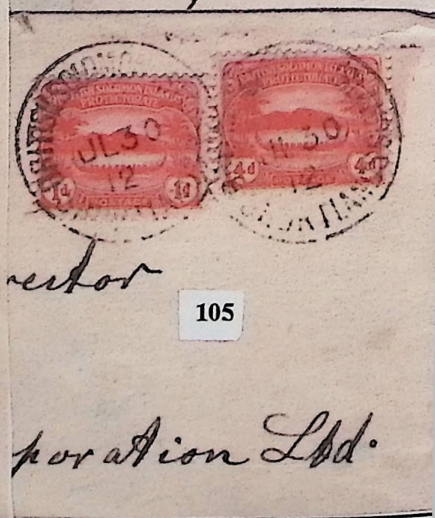 BRITISH SOLOMON ISLANDS
PROTECTORATE
1d 1d
POSTAGE
BRITISH SOLOMON ISLANDS
PROTECTORATE
4d 4d
POSTAGE
JL 30
12
JL 30
12
rector
105
poration Ltd.